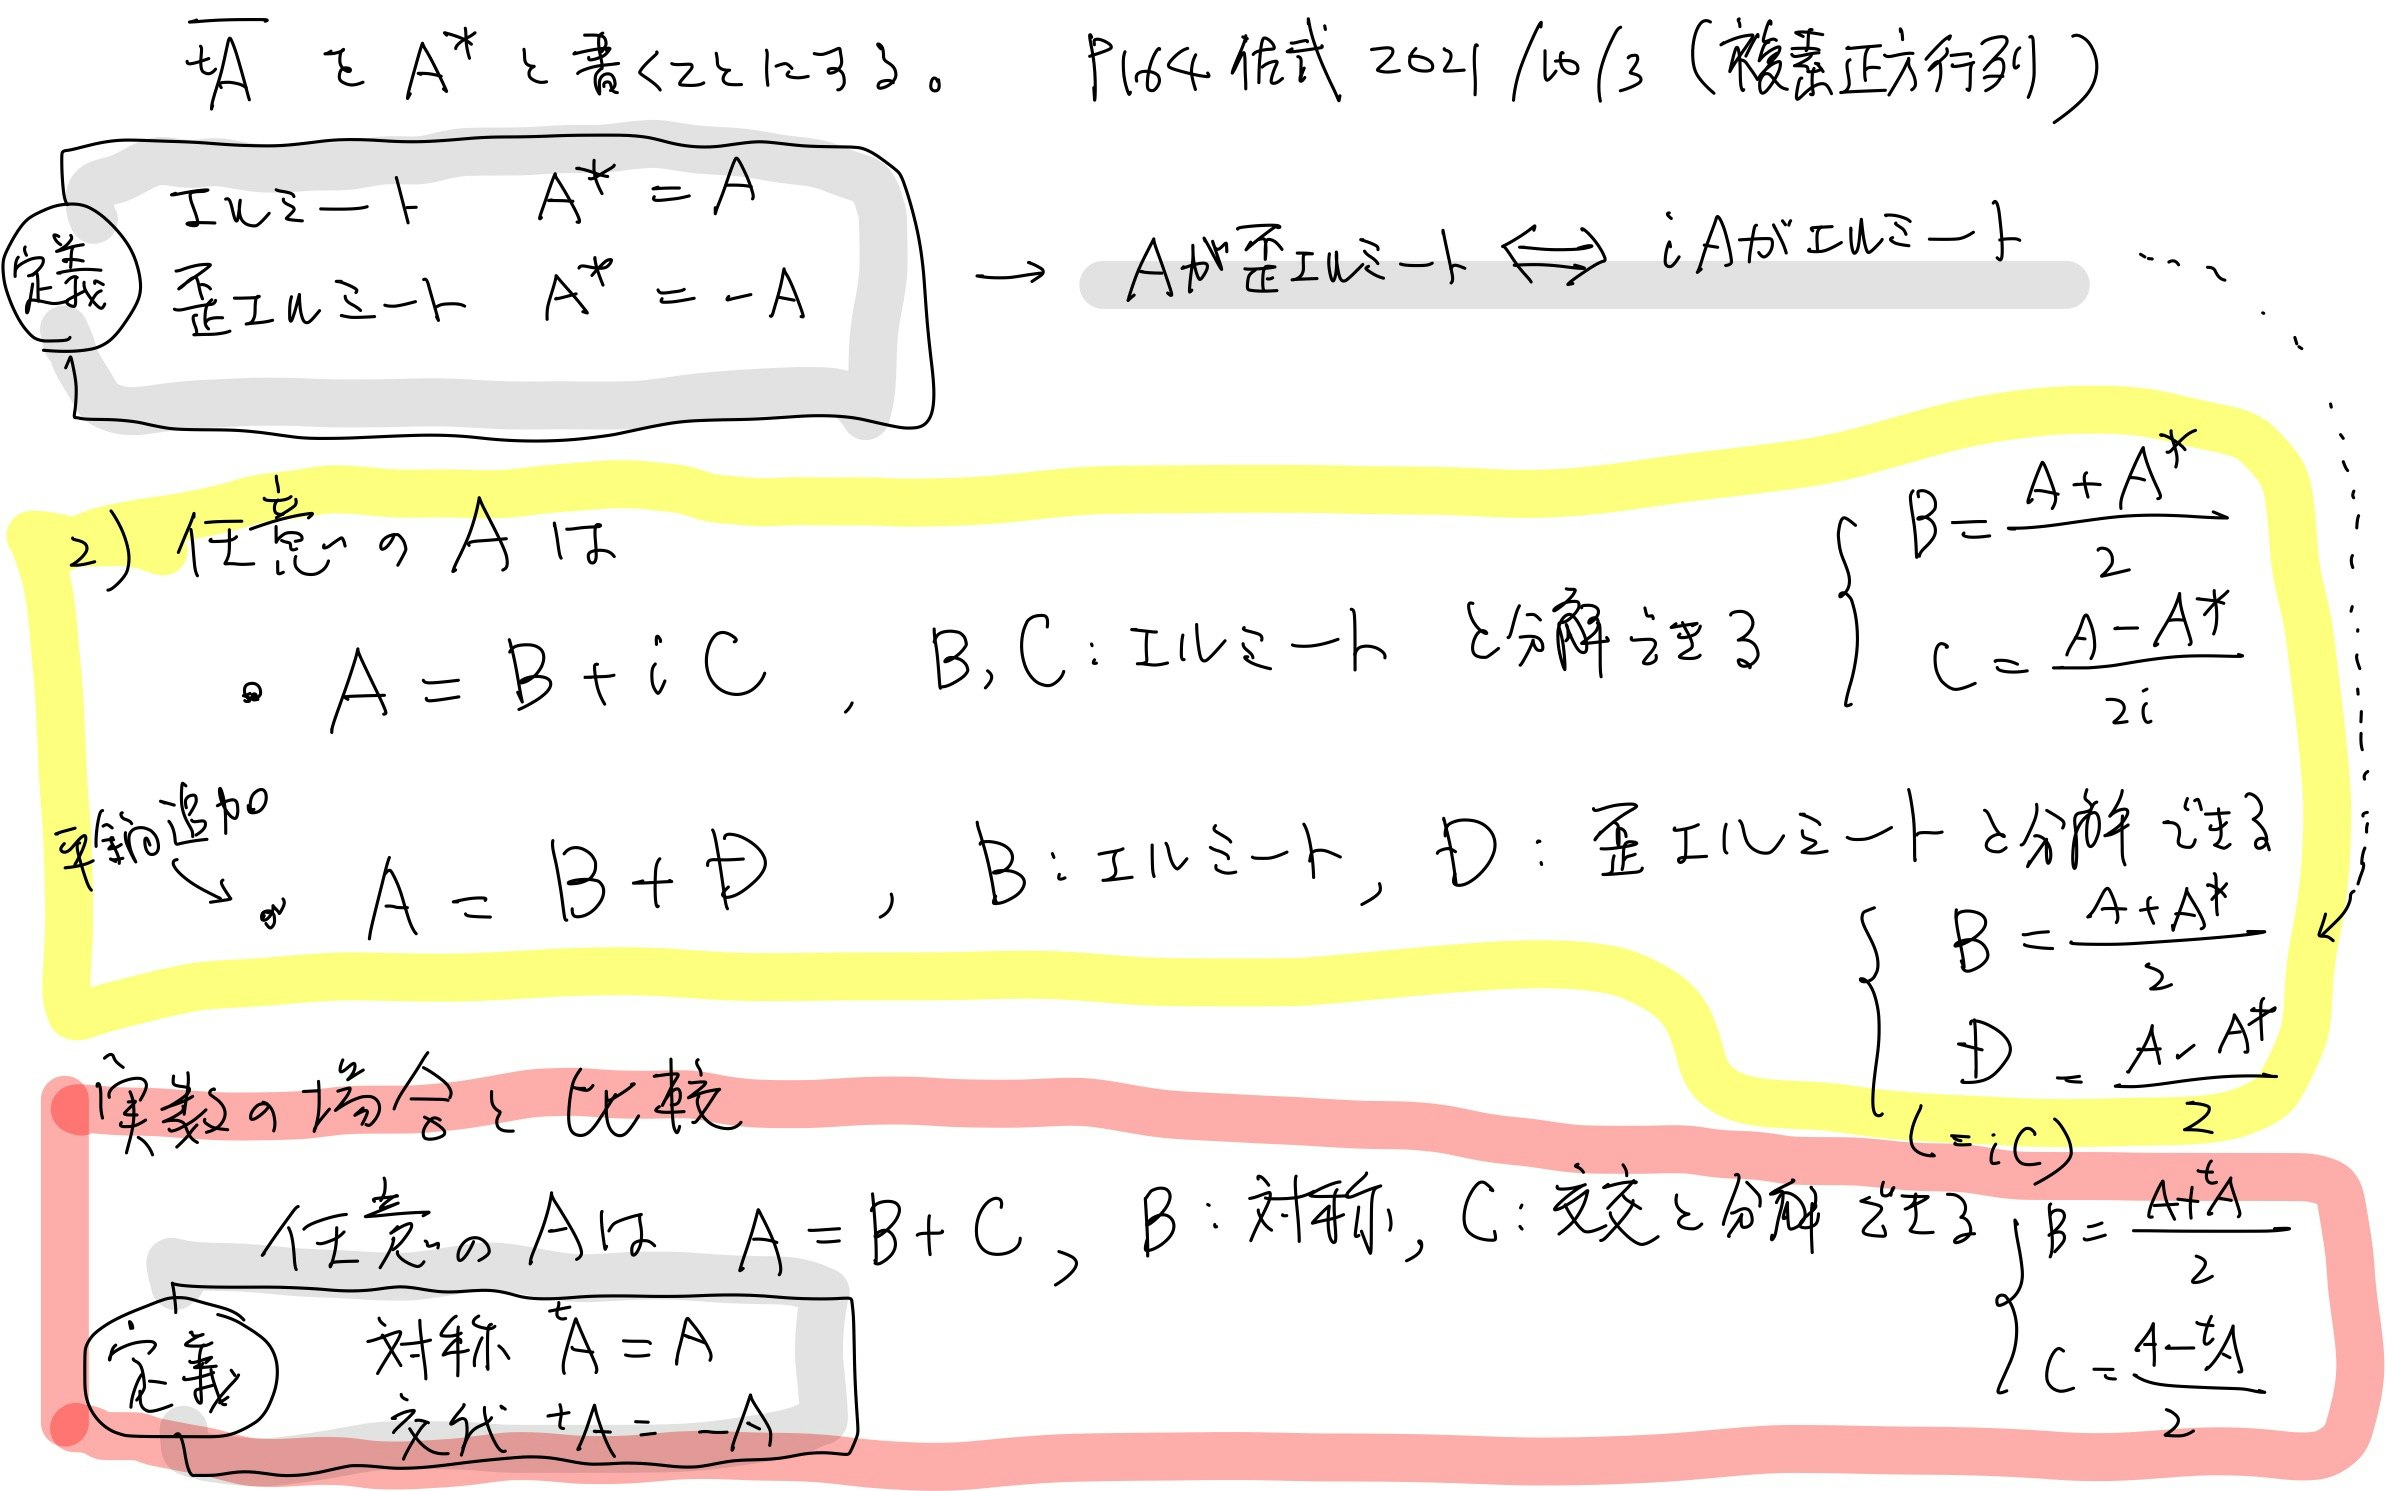 ᵗA̅ を A* と書くことにする。 P164 佐武 2021/10/3 (複素正方行列)
定義
エルミート A* = A
歪エルミート A* = -A
→ Aが歪エルミート ⟺ iAがエルミート ‥‥
2) 任意の A は
• A = B + iC , B, C : エルミート と分解できる { B = (A + A*)/2
C = (A - A*)/2i
追加
• A = B + D , B : エルミート, D : 歪エルミート と分解できる
{ B = (A + A*)/2
D = (A - A*)/2
(= iC)
実数の場合と比較
任意の A は A = B + C, B : 対称, C : 交交 と分解できる { B = (A + ᵗA)/2
C = (A - ᵗA)/2
定義
対称 ᵗA = A
交代 ᵗA = -A